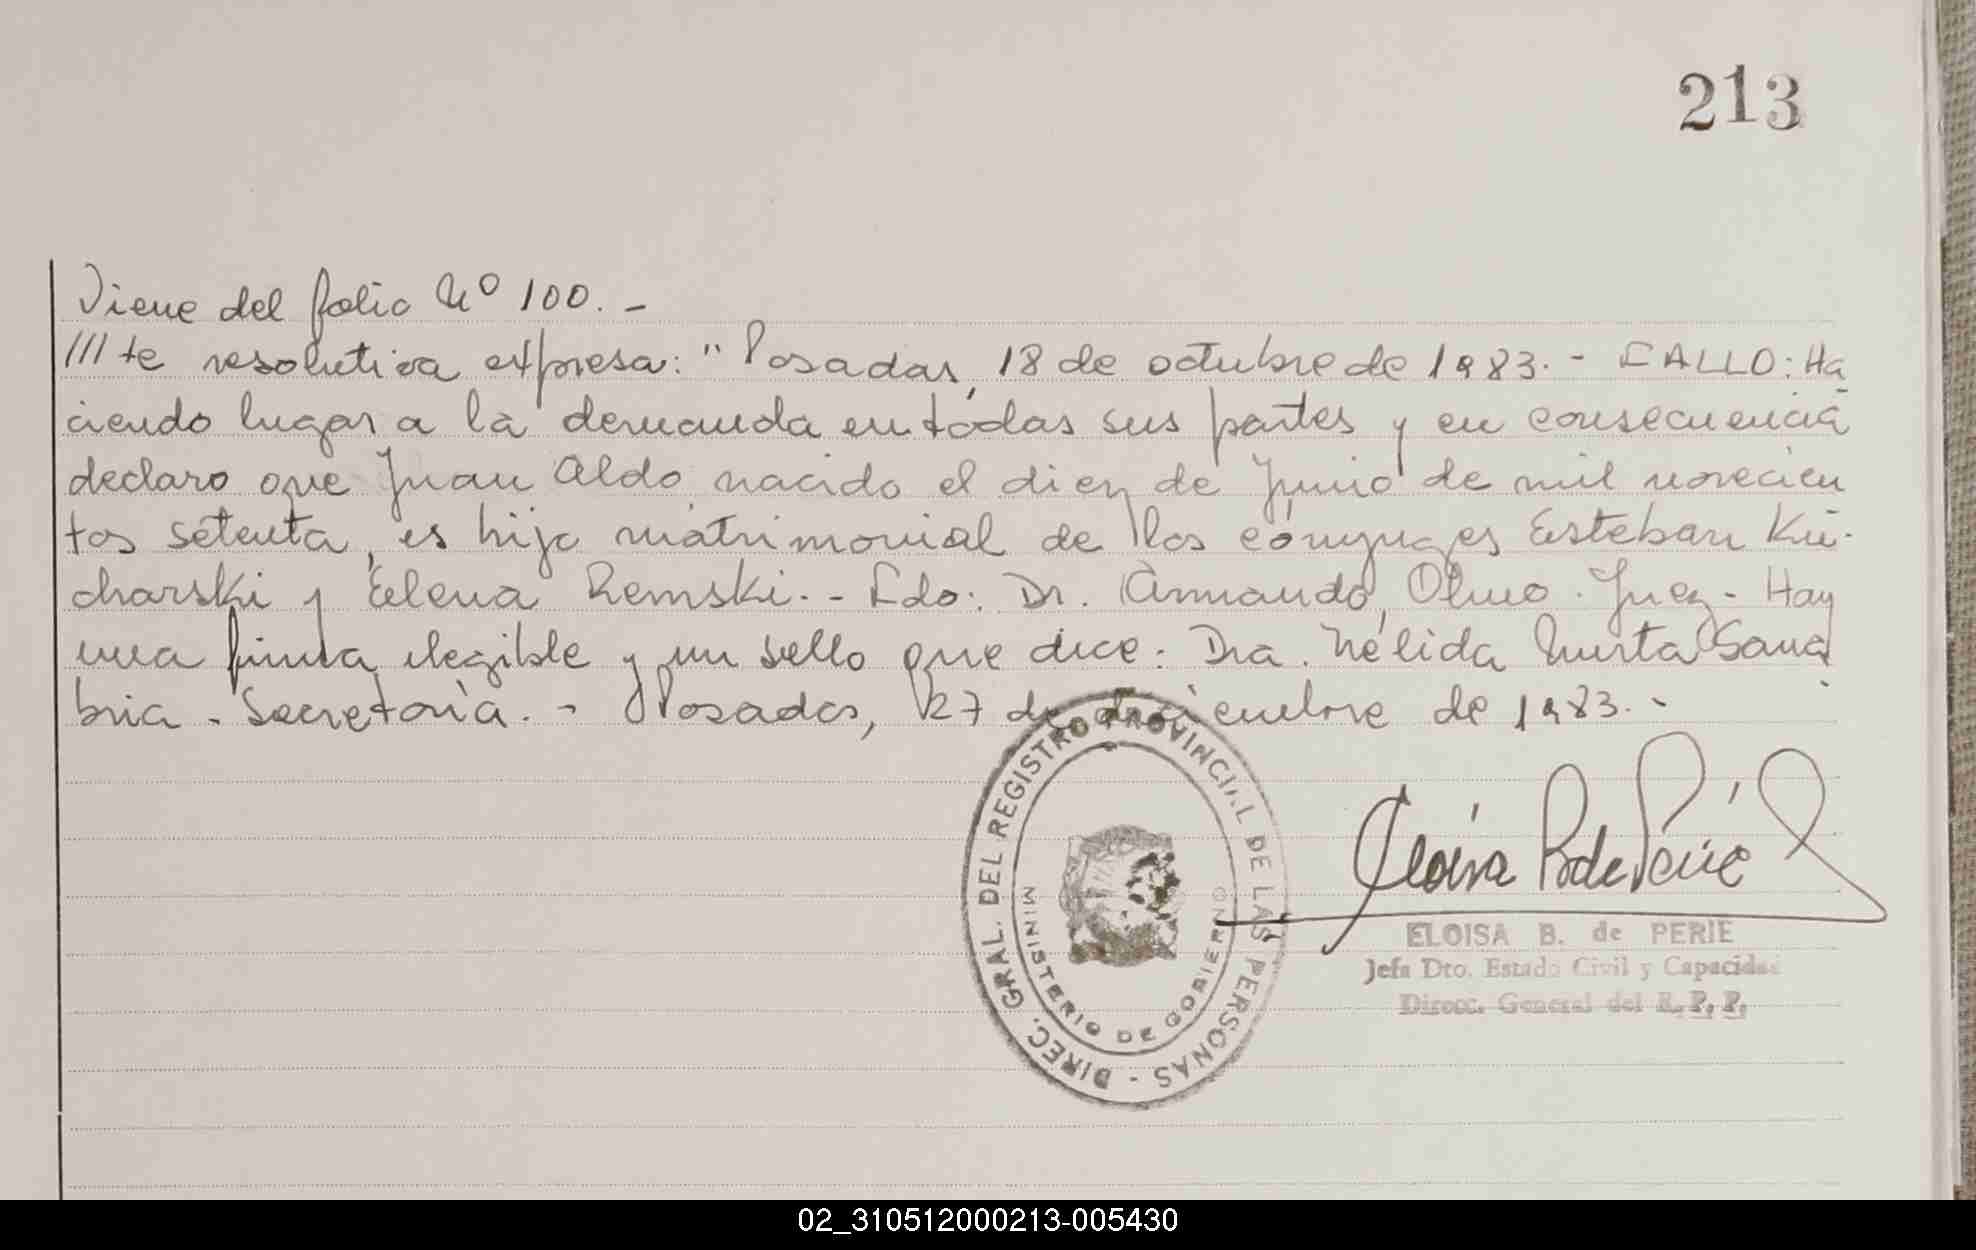 213
Viene del folio Nº 100.-
///te resolutiva expresa: "Posadas, 18 de octubre de 1983.- FALLO: Ha
ciendo lugar a la demanda en todas sus partes y en consecuencia
declaro que Juan Aldo nacido el diez de Junio de mil novecien
tos setenta, es hijo matrimonial de los cónyuges Esteban Ku-
charski y Elena Remski.- Fdo: Dr. Armando Olmo. Juez- Hay
una firma ilegible y un sello que dice: Dra. Nélida Mirta Sana
bria - Secretaria.- Posadas, 27 de diciembre de 1983.-
DIREC. GRAL. DEL REGISTRO PROVINCIAL DE LAS PERSONAS -
MINISTERIO DE GOBIERNO
Eloisa B de Perié
ELOISA B. de PERIE
Jefa Dto. Estado Civil y Capacidad
Direcc. General del R. P. P.
02_310512000213-005430